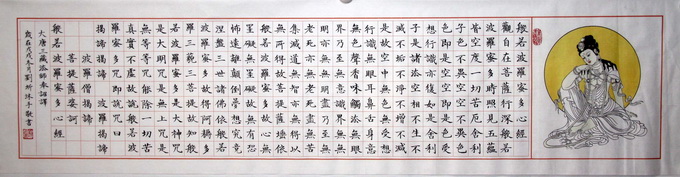 般若波羅蜜多心經
觀自在菩薩行深般若
波羅蜜多時照見五蘊
皆空度一切苦厄舍利
子色不異空空不異色
色即是空空即是色受
想行識亦復如是舍利
子是諸法空相不生不
滅不垢不淨不增不減
是故空中無色無受想
行識無眼耳鼻舌身意
無色聲香味觸法無眼
界乃至無意識界無無
明亦無無明盡乃至無
老死亦無老死盡無苦
集滅道無智亦無得以
無所得故菩提薩埵依
般若波羅蜜多故心無
罣礙無罣礙故無有恐
怖遠離顛倒夢想究竟
涅盤三世諸佛依般若
波羅蜜多故得阿耨多
羅三藐三菩提故知般
若波羅蜜多是大神咒
是大明咒是無上咒是
無等等咒能除一切苦
真實不虛故說般若波
羅蜜多咒即說咒曰
揭諦揭諦 波羅揭諦
波羅僧揭諦
菩提薩婆訶
般若波羅蜜多心經
大唐三藏法師奉詔譯
歲在戊戌 劉 敬書